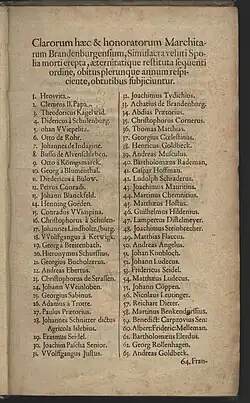 Clarorum hæc & honoratorum Marchita-
rum Brandenburgensium, Simulacra veluti Spo-
lia morti erepta, æternitatique restituta sequenti
ordine, obitus plerunque annum respi-
ciente, obtutibus subjiciuntur.
2. Clemens II. Papa.
3. Theodoricus Kagelwid.
4. Didericus à Schulenburg.
6. Otto de Rohr.
7. Johannes de Indagine.
8. Busso de Alvensleben.
9. Otto à Königsmarck.
10. Georg à Blumenthal.
11. Didericus à Bülow.
12. Petrus Conradi.
13. Johann Blanckfeld.
14. Henning Goeden.
15. Conradus VVimpina.
16. Christophorus à Schulen-
17. Johannes Lindholz. /burg.
18. VVolfgangus à Ketwigk.
19. Georg à Breitenbach.
20. Hieronymus Schurffius.
21. Georgius Bucholzerus.
22. Andreas Ebertus.
23. Christophorus de Strassen.
24. Johann VVeinloben.
25. Georgius Sabinus.
26. Adamus à Trotte.
27. Paulus Prætorius.
28. Johannes Schnitter dictus
Agricola Islebius.
29. Erasmus Seidel.
30. Joachim Pascha Senior.
31. VVolfgangus Justus.
32. Joachimus Tydichius.
33. Achatius de Brandenburg.
34. Abdias Prætorius.
35. Christophorus Cornerus.
36. Thomas Matthias.
37. Georgius Cœlestinus.
38. Henricus Goldbeck.
39. Andreas Musculus.
40. Bartholomæus Rademan.
41. Caspar Hoffman.
42. Ludolph Schraderus.
43. Joachimus Mauritius.
44. Martinus Chemnicius.
45. Matthæus Hostus.
46. Guilhelmus Hildenius.
47. Lampertus Distelmeyer.
48. Joachimus Steinbrecher.
49. Matthias Flaccus.
50. Andreas Angelus.
51. Johan Knobloch.
52. Johann Ludecus.
53. Fridericus Seidel.
54. Matthæus Ludecus.
55. Johann Cöppen.
56. Nicolaus Leutinger.
57. Reichart Dieter.
58. Martinus Benkendorffius.
59. Benedict: Carpzovius Sen:
60. Albert: Frideric: Melleman.
61. Bartholomæus Elerdus.
62. Georg Rollenhagen.
63. Andreas Goldbeck.
64. Fran-